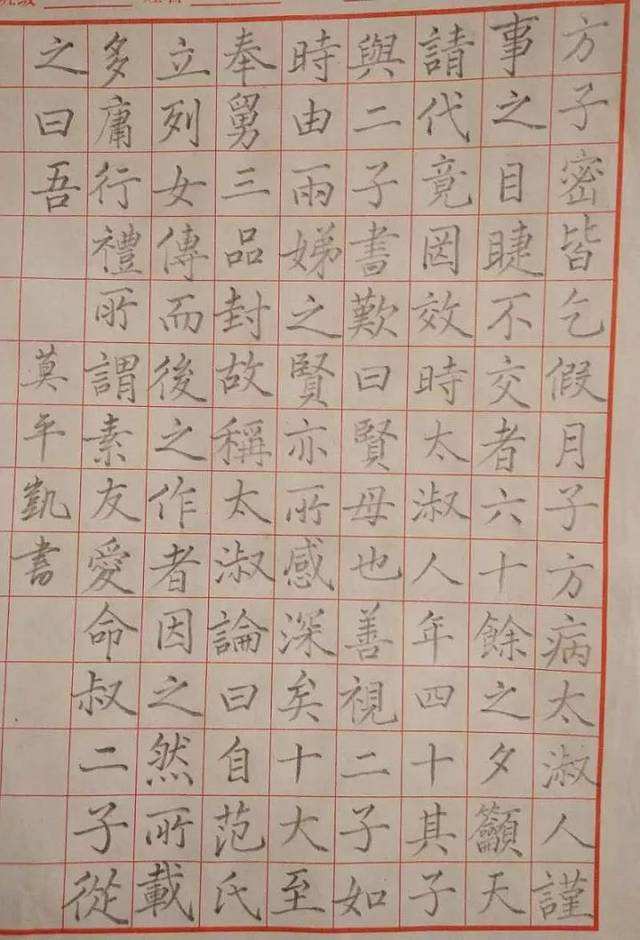 方子密皆乞假月子方病太淑人謹
事之目睫不交者六十餘之夕籲天
請代竟罔效時太淑人年四十其子
與二子書歎曰賢母也善視二子如
時由兩娣之賢亦所感深矣十大至
奉舅三品封故稱太淑論曰自范氏
立列女傳而後之作者因之然所載
多庸行禮所謂素友愛命叔二子從
之曰吾
莫平凱書